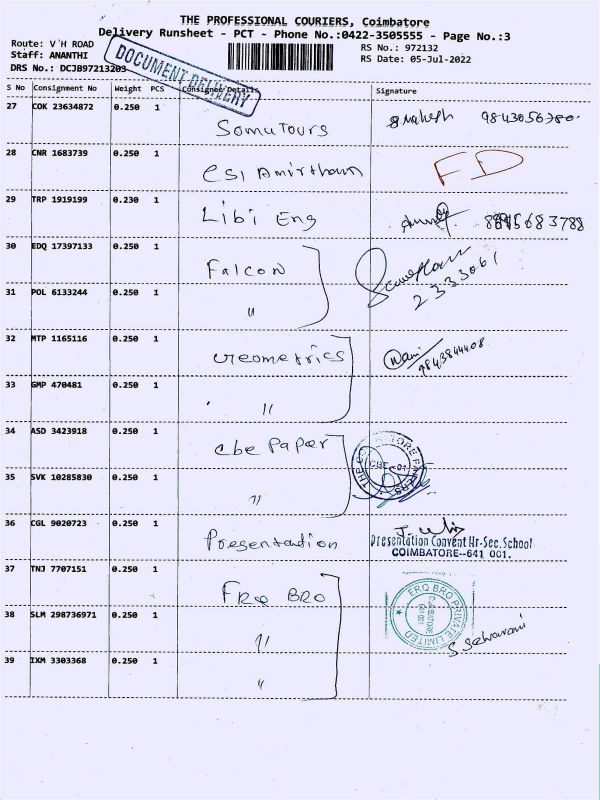 THE PROFESSIONAL COURIERS, Coimbatore
Delivery Runsheet - PCT - Phone No.:0422-3505555 - Page No.:3
Route: V H ROAD
RS No.: 972132
Staff: ANANTHI
RS Date: 05-Jul-2022
DRS No.: DCJB97213203
DOCUMENT DELIVERY
S No Consignment No Weight PCS Consignee Details Signature
27 COK 23634872 0.250 1 Somu Tours
28 CNR 1683739 0.250 1 CSI Amirtham FD
29 TRP 1919199 0.230 1 Libi Eng
30 EDQ 17397133 0.250 1 Falcon 2333061
31 POL 6133244 0.250 1 "
32 MTP 1165116 0.250 1 Geometrics Mani 9843844408
33 GMP 470481 0.250 1 "
34 ASD 3423918 0.250 1 cbe Paper
CBE - 01
35 SVK 10285830 0.250 1 "
36 CGL 9020723 0.250 1 Presentation
Presentation Convent Hr-Sec.School
COIMBATORE--641 001.
37 TNJ 7707151 0.250 1 FRQ BRO
FRQ BRO PRIVATE LIMITED
38 SLM 298736971 0.250 1 "
39 IXM 3303368 0.250 1 "